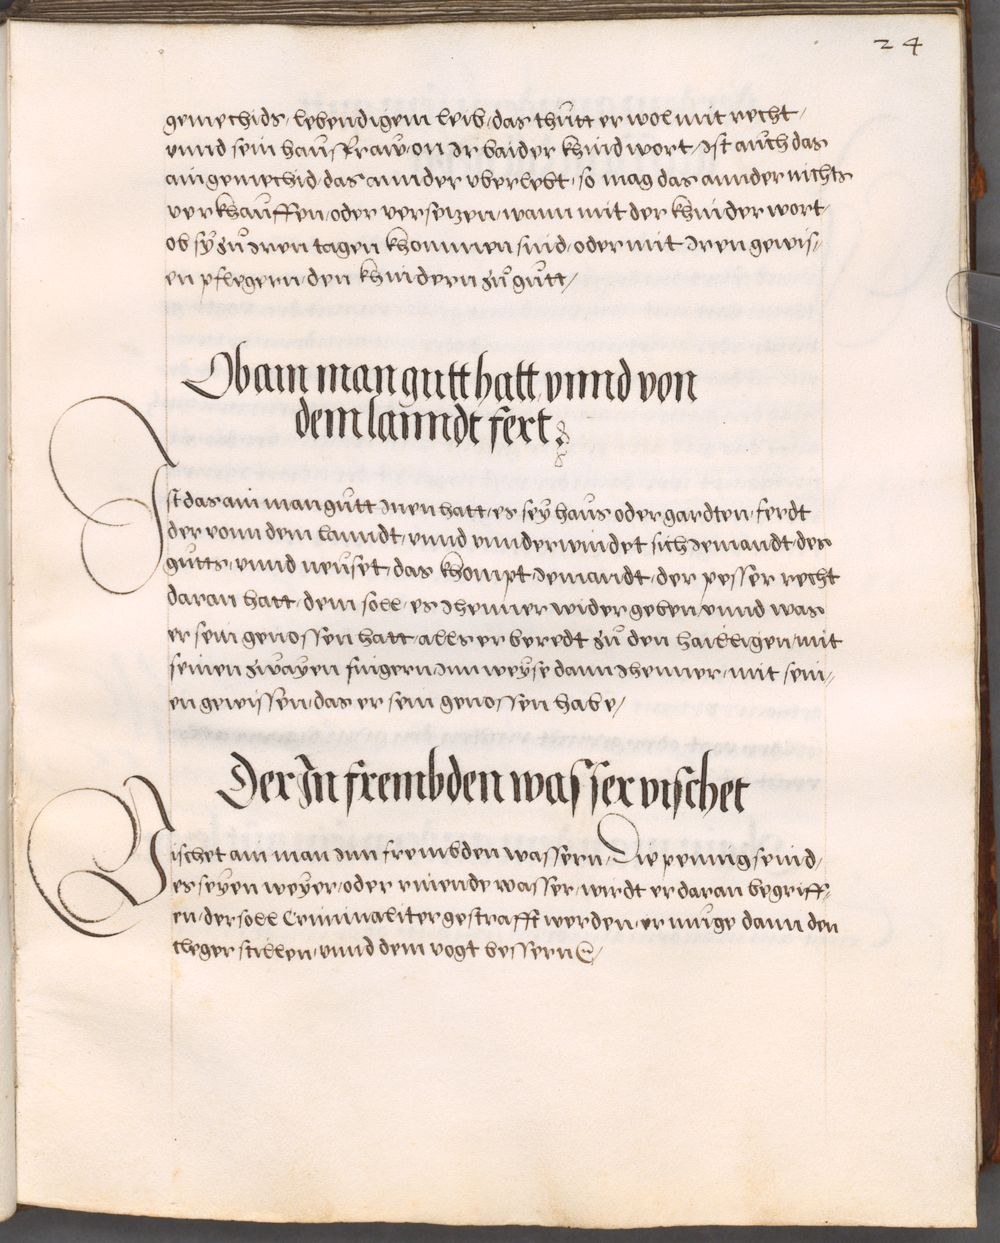 24
gemechids, lebendigem leib, das thůtt er wol mit recht,
vnnd sein haůsfraw, on Ir baider khind wort, Ist aůch das
ain gemechid, das annder vberlebt, so mag das annder nichts
verkhaůffen, oder versetzen, wann mit der khinder wort,
ob sÿ zů Iren tagen khommen sind, oder mit Iren gewis,
en pflegern, den khindern zů gůtt,
Ob ain man gutt hatt, vnnd von
dem lanndt fert
Ist das ain man gůtt Inen hatt, es seÿ haůs oder gardten, ferdt
der vonn dem lanndt, vnnd vnnderwindet sich Jemandt, des
gůtts, vnnd neůset, das khompt Jemandt, der pesser recht
daran hatt, dem soll, es Jhenner wider geben, vnnd was
er sein genossen hatt, alls er beredt zů den hailligen, mit
seinen zwaÿen fingern, Inn weÿse dann Jhenner, mit sein,
en gewissen, das er sein genossen habe,
Der In frembden wasser vischet
Vischet ain man Inn frembden wassern, Die pennig seind,
es seÿen weÿer, oder rinende wasser, wirdt er daran begriff,
en, der soll Criminaliter gestrafft werden, er můge dann den
cleger stillen, vnnd dem vogt bessern